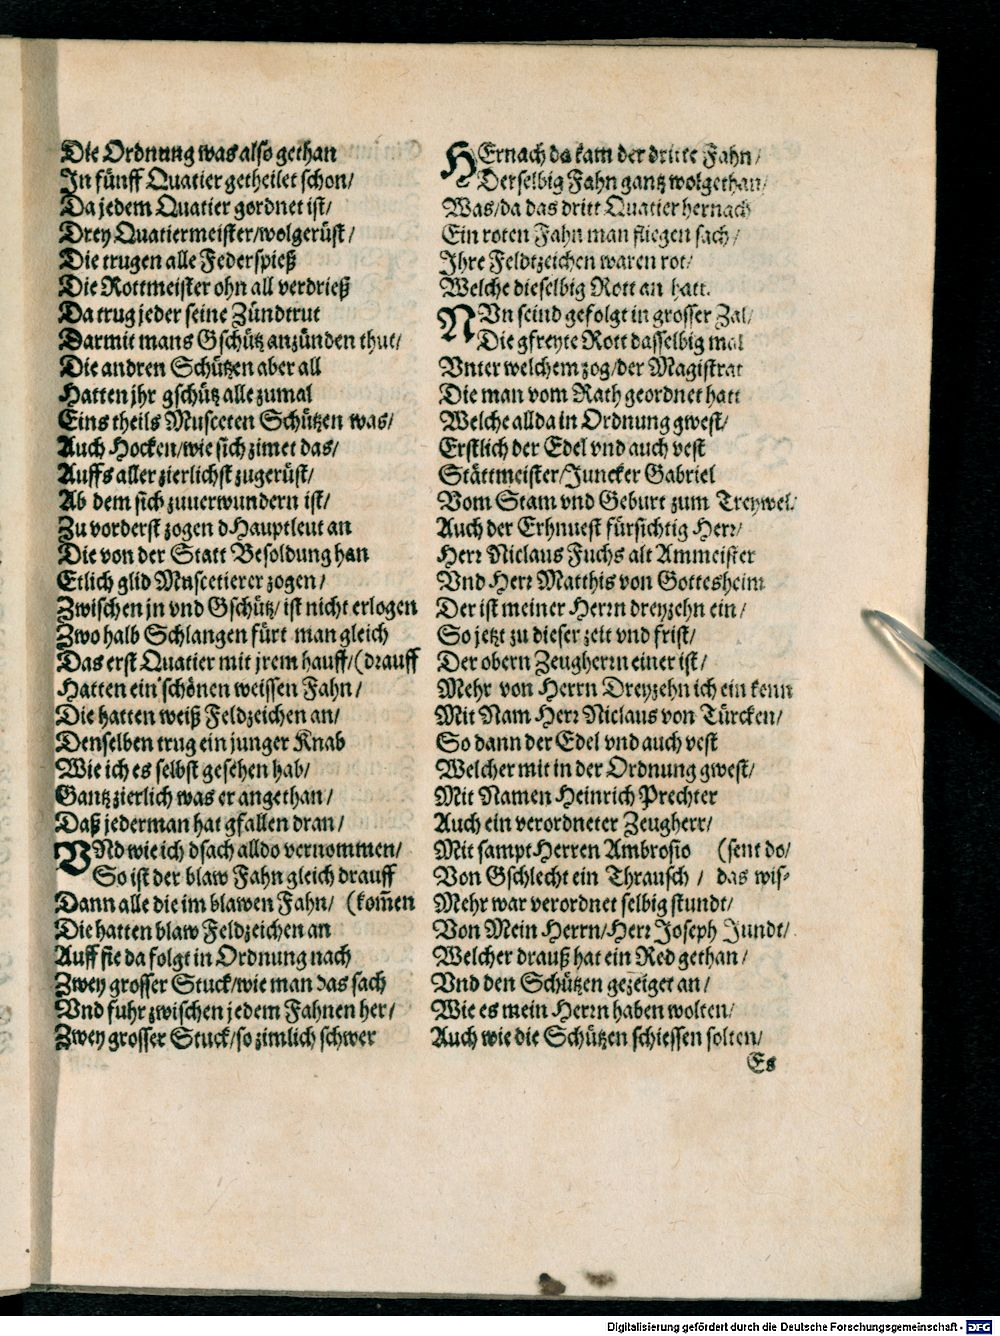 Die Ordnung was also gethan
In fünff Quatier getheilet schon/
Da jedem Quatier gordnet ist/
Drey Quatiermeister/wolgerüst/
Die trugen alle Federspieß
Die Rottmeister ohn all verdrieß
Da trug jeder seine Zündtrut
Darmit mans Gschütz anzünden thut/
Die andren Schützen aber all
Hatten jhr gschütz alle zumal
Eins theils Musceten Schützen was/
Auch Hocken/wie sich zimet das/
Auffs aller zierlichst zugerüst/
Ab dem sich zuuerwundern ist/
Zu vorderst zogen dHauptleut an
Die von der Statt Besoldung han
Etlich glid Muscetierer zogen/
Zwischen jn vnd Gschütz/ ist nicht erlogen
Zwo halb Schlangen fürt man gleich
Das erst Quatier mit jrem hauff/(drauff
Hatten ein schönen weissen Fahn/
Die hatten weiß Feldzeichen an/
Denselben trug ein junger Knab
Wie ich es selbst gesehen hab/
Gantz zierlich was er angethan/
Daß jederman hat gfallen dran/
VNd wie ich dsach alldo vernommen/
So ist der blaw Fahn gleich drauff
Dann alle die im blawen Fahn/ (kom̃en
Die hatten blaw Feldzeichen an
Auff sie da folgt in Ordnung nach
Zwey grosser Stuck/wie man das sach
Vnd fuhr zwischen jedem Fahnen her/
Zwey grosser Stuck/so zimlich schwer
HErnach da kam der dritte Fahn/
Derselbig Fahn gantz wolgethan/
Was/da das dritt Quatier hernach
Ein roten Fahn man fliegen sach/
Ihre Feldtzeichen waren rot/
Welche dieselbig Rott an hatt.
NVn seind gefolgt in grosser Zal/
Die gfreyte Rott dasselbig mal
Vnter welchem zog/der Magistrat
Die man vom Rath geordnet hatt
Welche allda in Ordnung gwest/
Erstlich der Edel vnd auch vest
Stättmeister/Juncker Gabriel
Vom Stam vnd Geburt zum Treywel/
Auch der Erhnuest fürsichtig Herr/
Herr Niclaus Fuchs alt Ammeister
Vnd Herr Matthis von Gottesheim
Der ist meiner Herrn dreyzehn ein/
So jetzt zu dieser zeit vnd frist/
Der obern Zeugherrn einer ist/
Mehr von Herrn Dreyzehn ich ein kenn
Mit Nam Herr Niclaus von Türcken/
So dann der Edel vnd auch vest
Welcher mit in der Ordnung gwest/
Mit Namen Heinrich Prechter
Auch ein verordneter Zeugherr/
Mit sampt Herren Ambrosio (sent do/
Von Gschlecht ein Thrausch / das wis-
Mehr war verordnet selbig stundt/
Von Mein Herrn/Herr Joseph Jundt/
Welcher drauß hat ein Red gethan/
Vnd den Schützen gezeiget an/
Wie es mein Herrn haben wolten/
Auch wie die Schützen schiessen solten/
Es
Digitalisierung gefördert durch die Deutsche Forschungsgemeinschaft - DFG